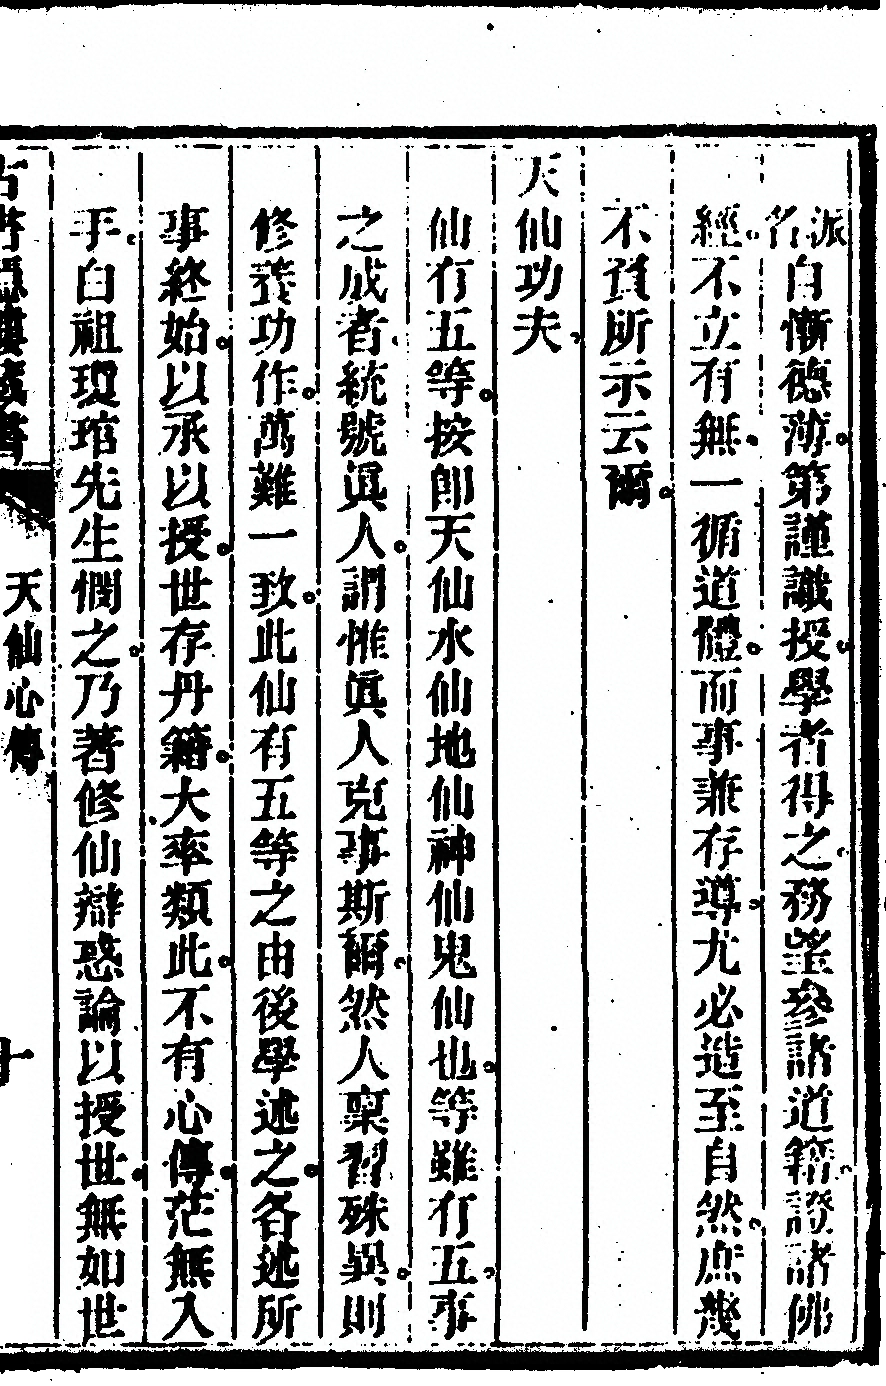 派名自慚德薄第謹識授學者得之務望參諸道籍證諸佛
經不立有無一循道體而事兼存導尤必造至自然庶幾
不負所示云爾
天仙功夫
仙有五等按卽天仙水仙地仙神仙鬼仙也等雖有五事
之成者統號眞人謂惟眞人克事斯爾然人稟習殊異則
修養功作萬難一致此仙有五等之由後學述之各述所
事終始以承以授世存丹籍大率類此不有心傳茫無入
手白祖瓊琯先生憫之乃著修仙辯惑論以授世無如世
古書隱樓藏書
天仙心傳
十